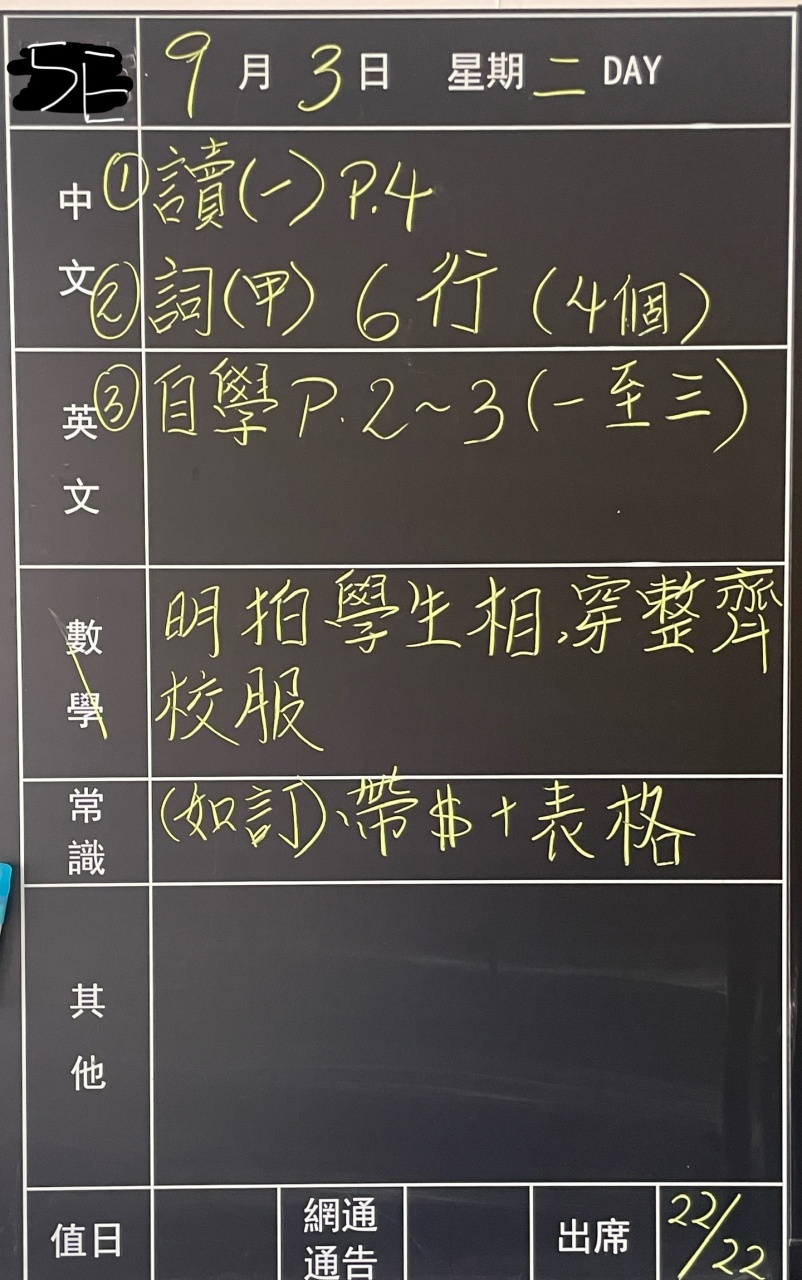 5E 9月3日 星期二 DAY
中文 ①讀(一) P.4
②詞(甲) 6行 (4個)
英文 ③自學 P.2~3 (一至三)
數學 明拍學生相,穿整齊
校服
常識 (如訂)、帶$+表格
其他
值日 網通通告 出席 22/22